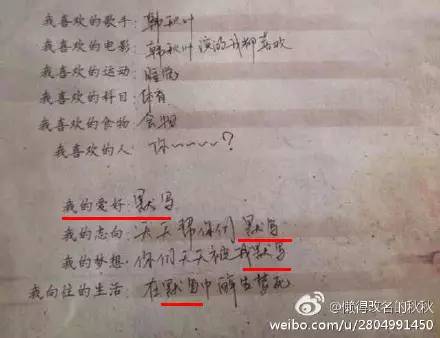 我喜欢的歌手: 韩秋叶
我喜欢的电影: 韩秋叶演的我都喜欢
我喜欢的运动: 睡觉
我喜欢的科目: 体育
我喜欢的食物: 食物
我喜欢的人: 你~~~~?
我的爱好: 默写
我的志向: 天天帮你们默写
我的梦想: 你们天天被我默写
我向往的生活: 在默写中醉生梦死
@懒得改名的秋秋
weibo.com/u/2804991450